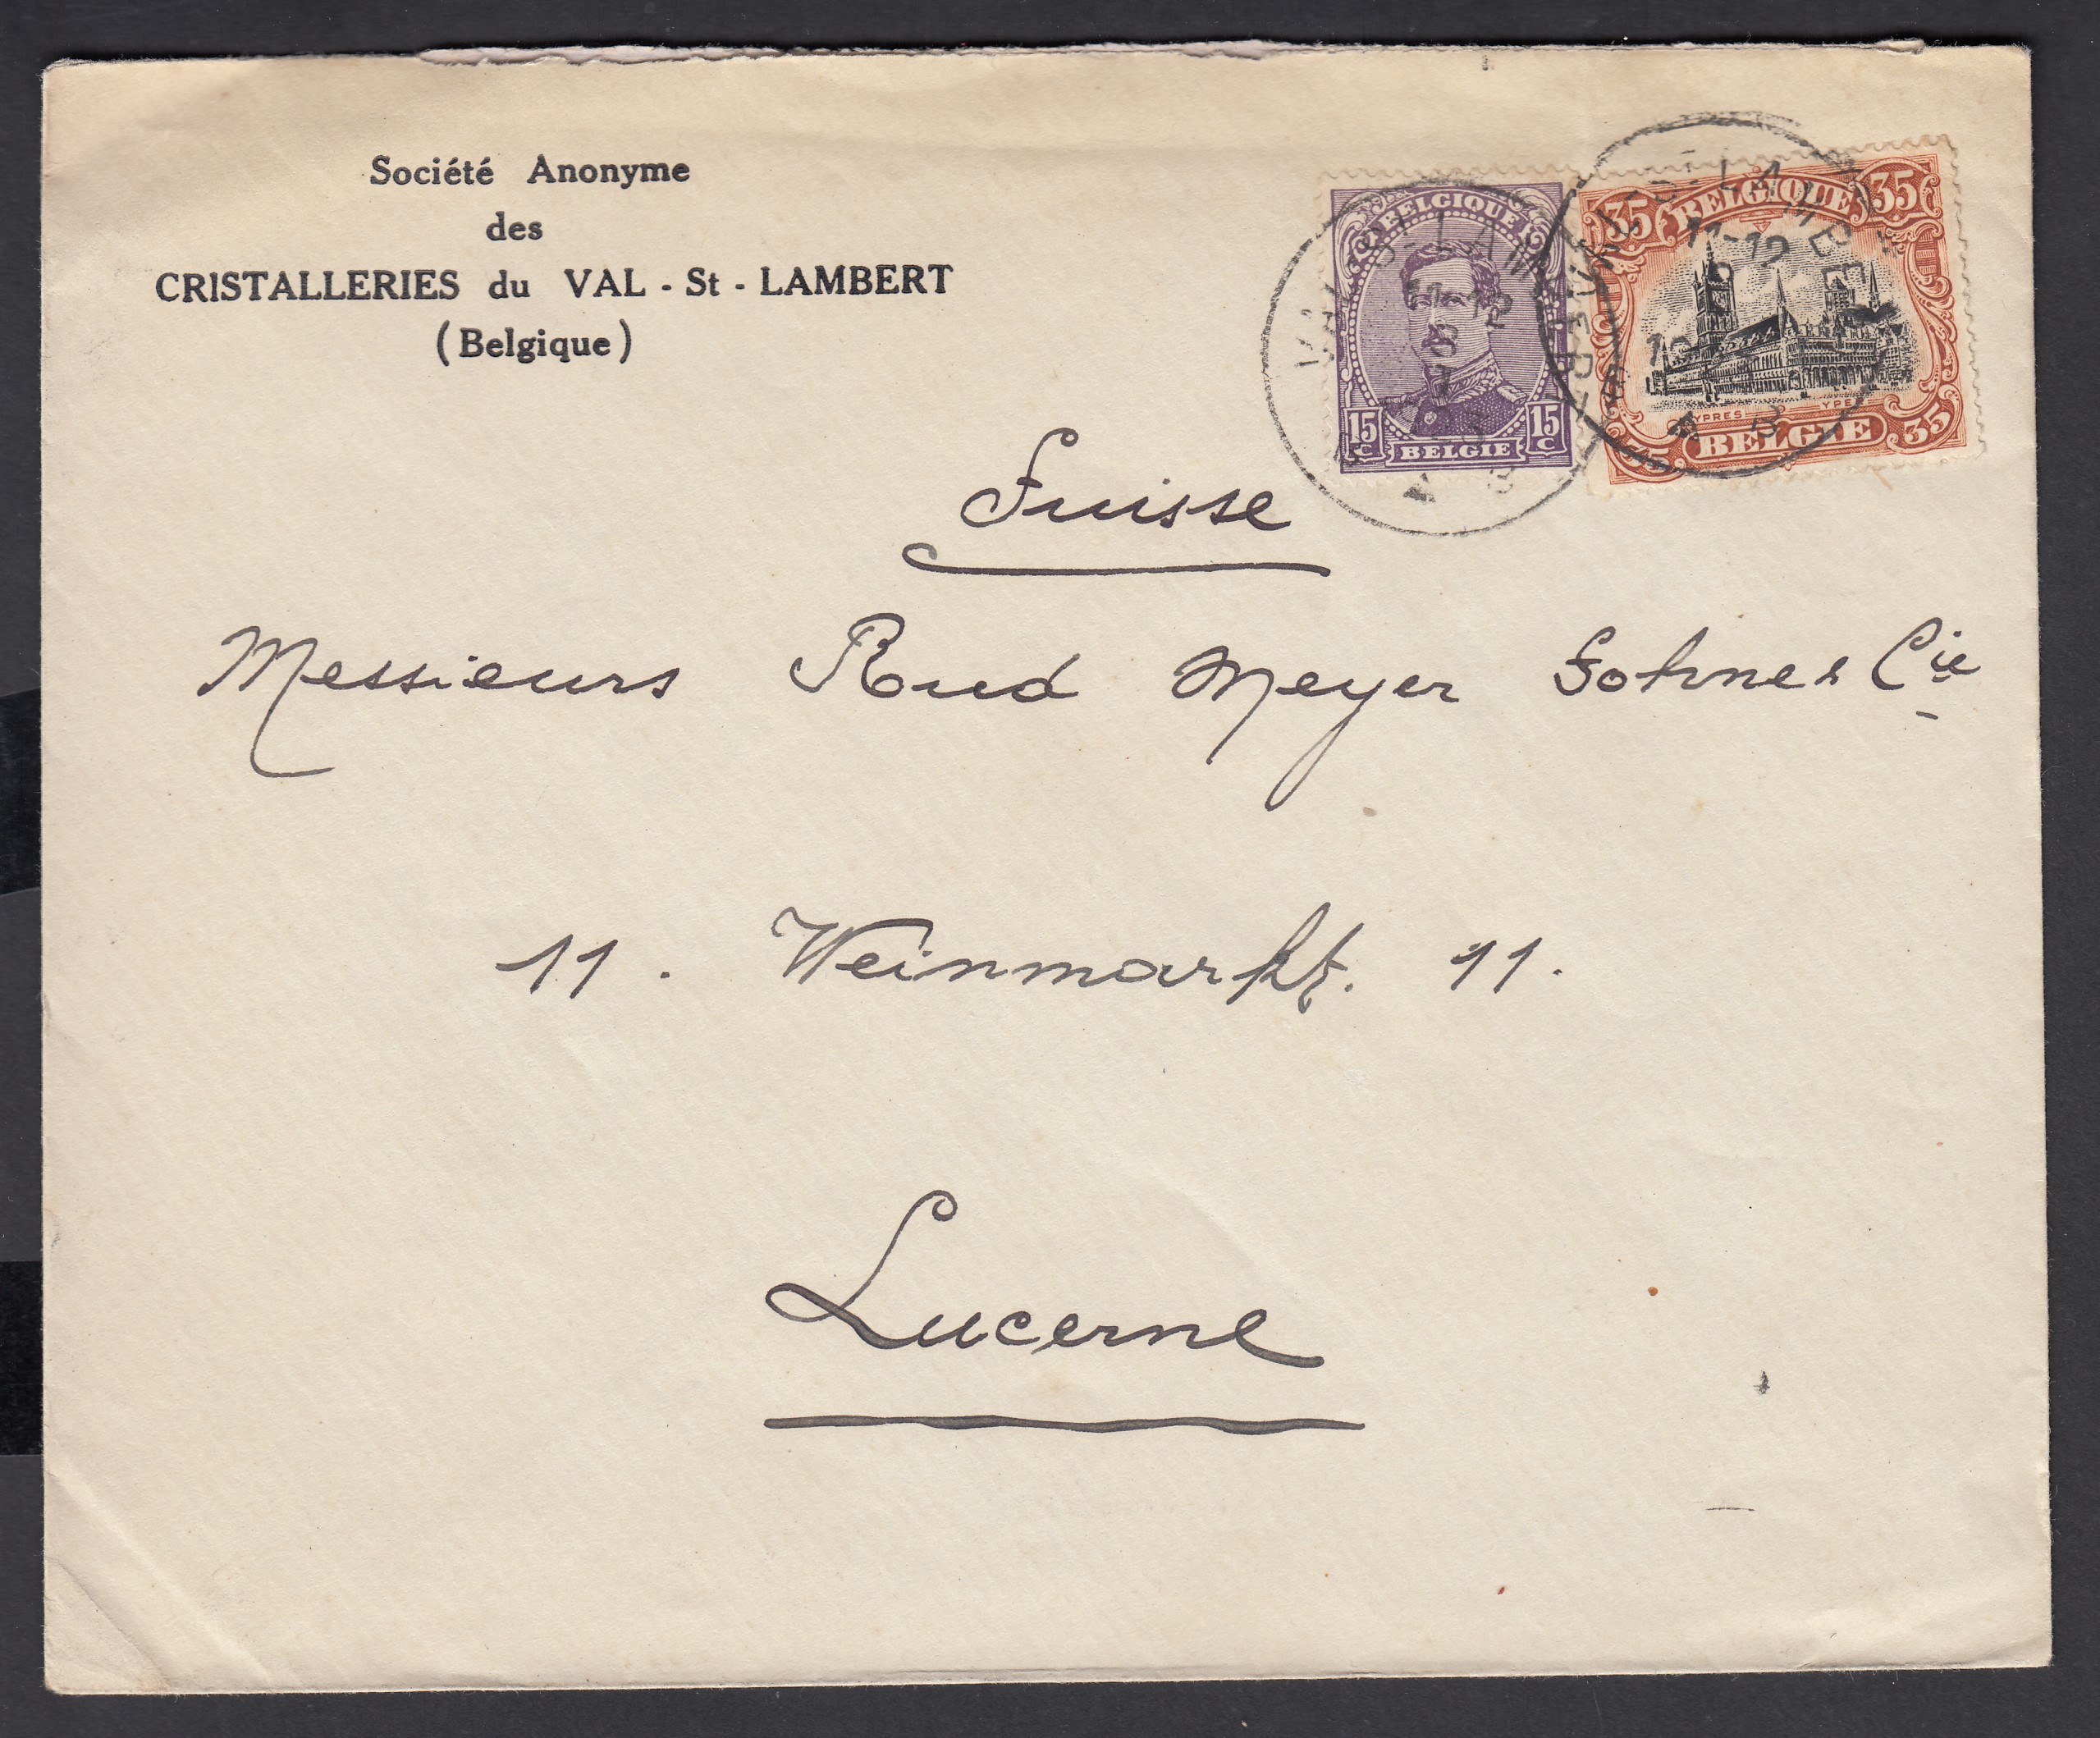 Société Anonyme
des
CRISTALLERIES du VAL - St - LAMBERT
(Belgique)
BELGIQUE
15 C 15 C
BELGIE
35 BELGIQUE 35
YPRES YPER
35 BELGIE 35
11-12
11-12
Suisse
Messieurs Rud Meyer Sohne & Cie
11. Weinmarkt. 11.
Lucerne